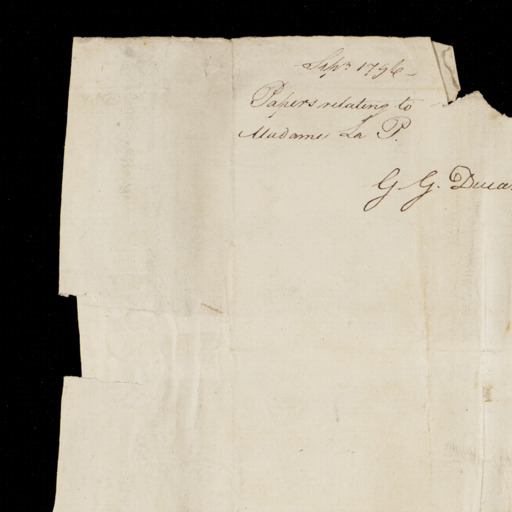 Sepr. 1796 -
Papers relating to
Madame La P.
G. G. Ducar